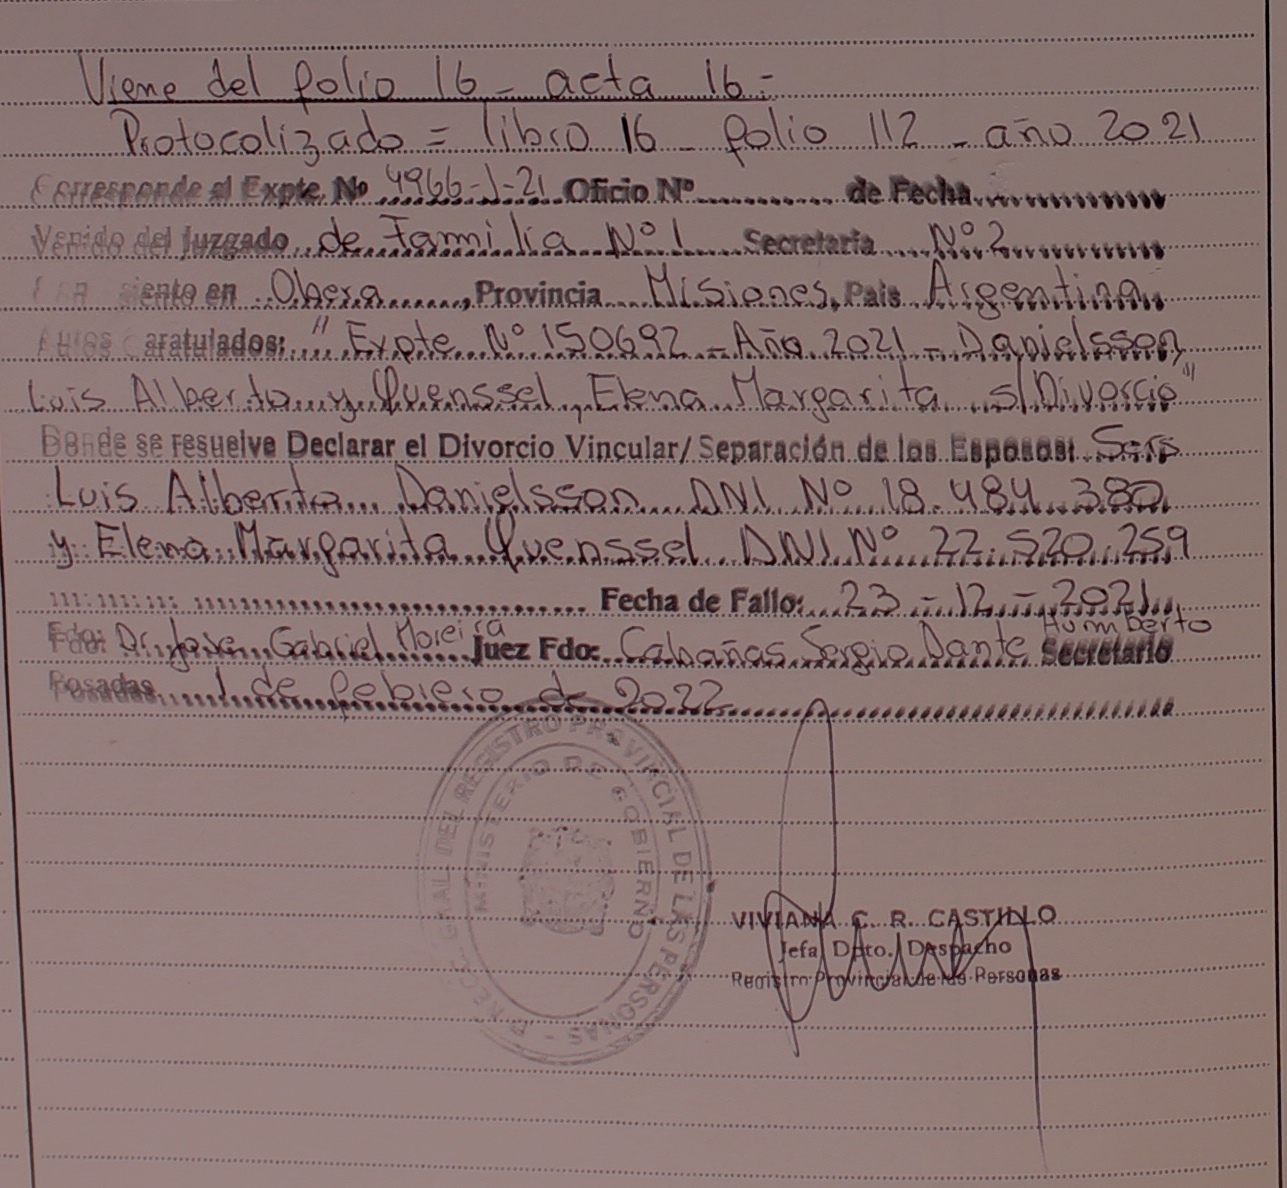 Viene del folio 16 - acta 16 =
Protocolizado = libro 16 - folio 112 - año 2021
Corresponde al Expte. Nº 4966-J-21 Oficio Nº ............ de Fecha ..............
Venido del Juzgado de Familia Nº 1 Secretaría Nº 2
siento en Obera, Provincia Misiones, País Argentina
Autos Caratulados: "Expte Nº 150692 - Año 2021 - Danielsson
Luis Alberto y Quenssel, Elena Margarita s/Divorcio"
Donde se resuelve Declarar el Divorcio Vincular/ Separación de los Esposos: Sers
Luis Alberto Danielsson DNI Nº 18.484.380
y Elena Margarita Quenssel DNI Nº 22.520.259
Fecha de Fallo: 23 - 12 - 2021
Fdo: Dr. Jose Gabriel Moreira Juez Fdo: Cabañas Sergio Dante Humberto Secretario
Posadas, 1 de febrero de 2022
DIRECC. GRAL. DEL REGISTRO PROVINCIAL DE LAS PERSONAS -
MINISTERIO DE GOBIERNO
VIVIANA C. R. CASTILLO
Jefa Dpto. Despacho
Registro Provincial de las Personas